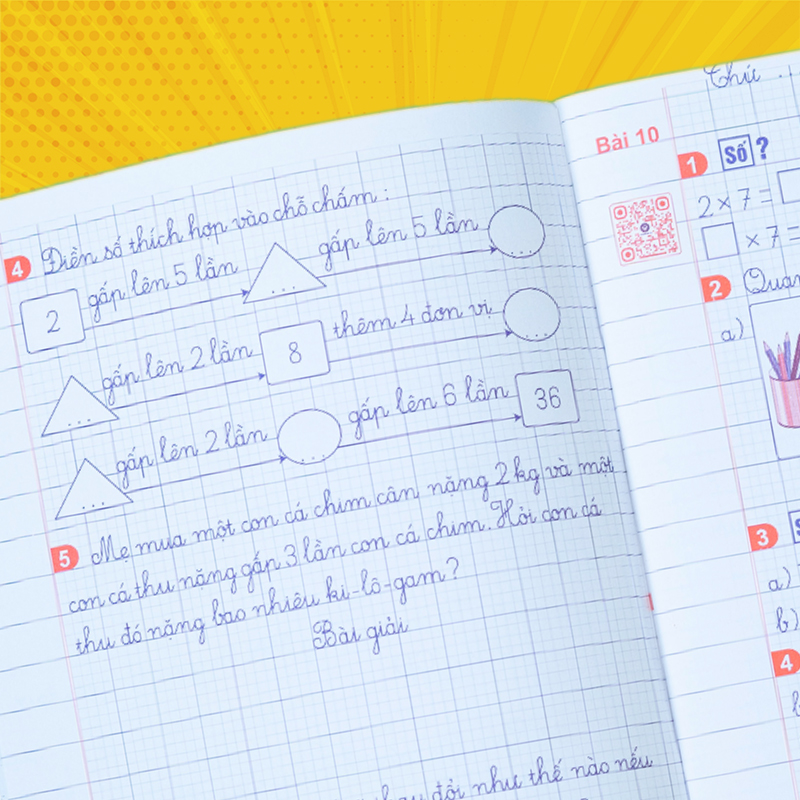 4 Điền số thích hợp vào chỗ chấm :
2 gấp lên 5 lần ... gấp lên 5 lần ...
... gấp lên 2 lần 8 thêm 4 đơn vị ...
... gấp lên 2 lần ... gấp lên 6 lần 36
5 Mẹ mua một con cá chim cân nặng 2 kg và một
con cá thu nặng gấp 3 lần con cá chim. Hỏi con cá
thu đó nặng bao nhiêu ki-lô-gam?
Bài giải
đổi như thế nào nếu
Thứ
Bài 10
1 Số ?
2 × 7 =
× 7 =
2
a)
3
a)
b)
4